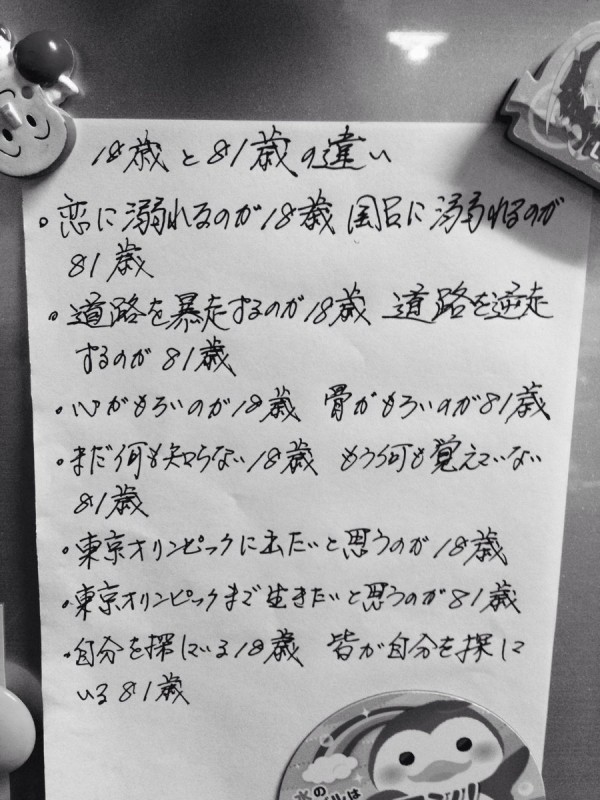 18歳と81歳の違い
・恋に溺れるのが18歳 風呂に溺れるのが
81歳
・道路を暴走するのが18歳 道路を逆走
するのが81歳
・心がもろいのが18歳 骨がもろいのが81歳
・まだ何も知らない18歳 もう何も覚えていない
81歳
・東京オリンピックに出たいと思うのが18歳
・東京オリンピックまで生きたいと思うのが81歳
・自分を探している18歳 皆が自分を探して
いる81歳